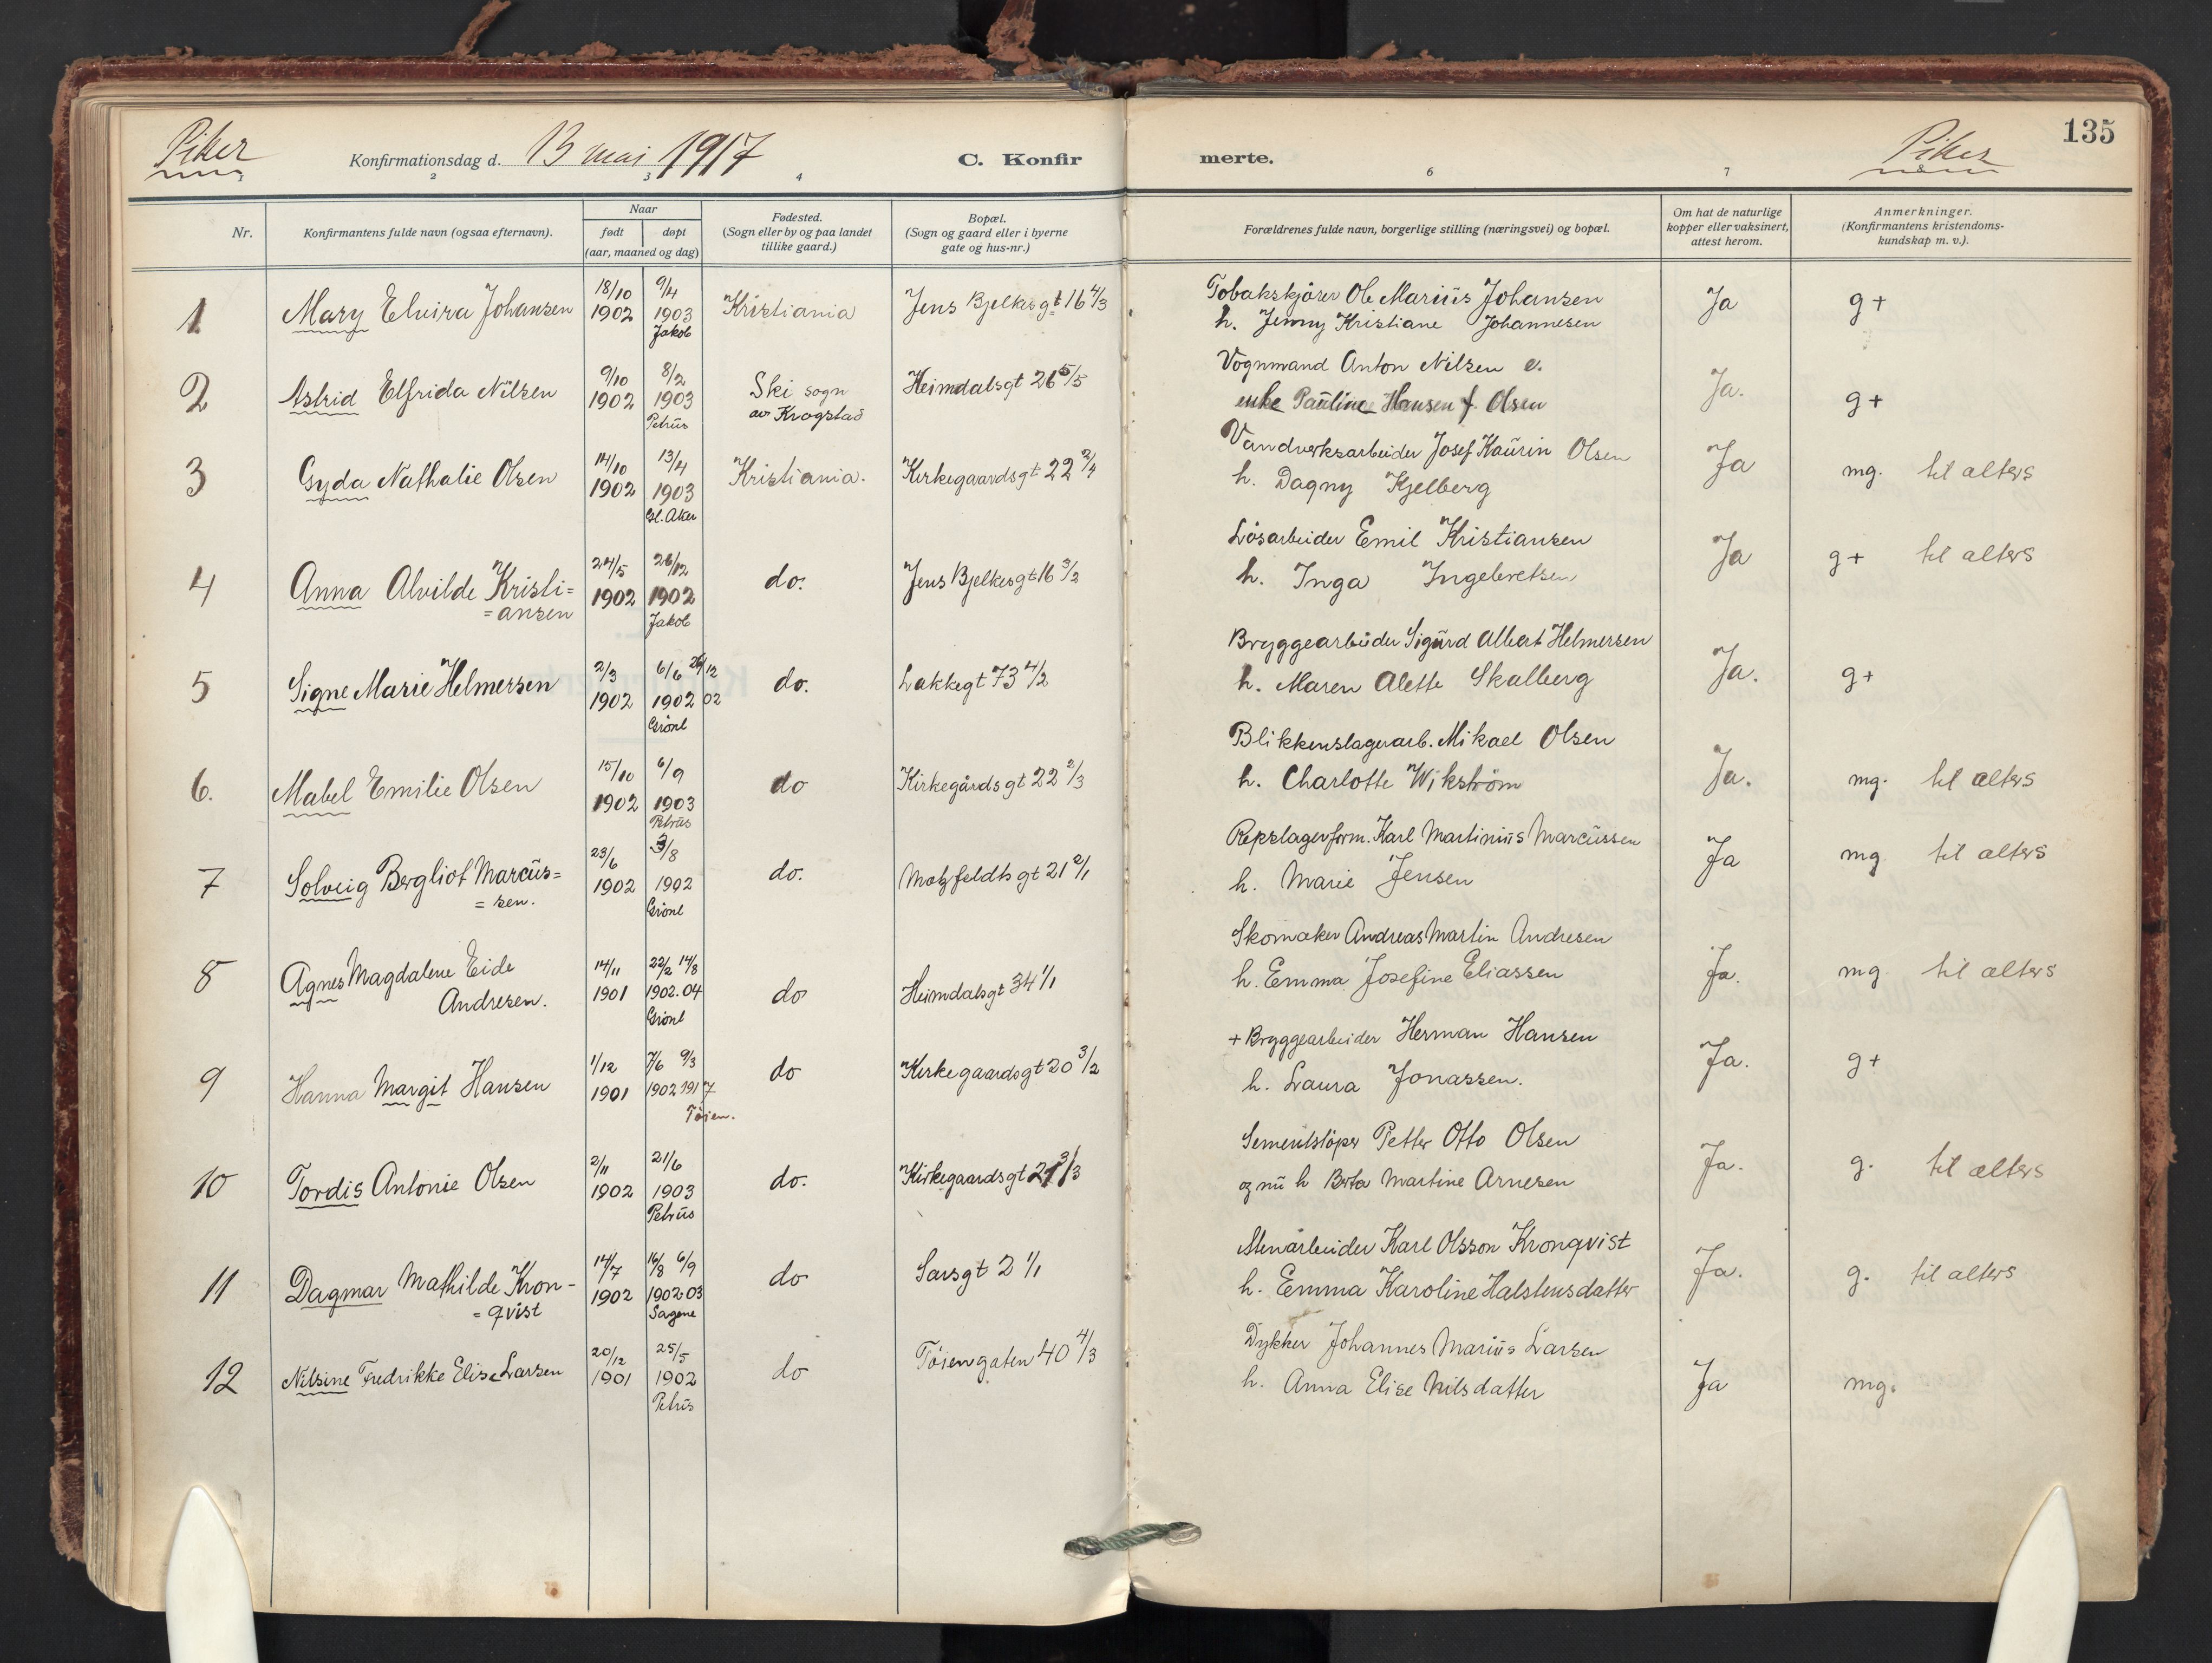 Piker
Konfirmationsdag d. 13 mai 1917
C. Konfir
merte.
Piker
135
1 2 3 4 6 7 8
Nr.
Konfirmantens fulde navn (ogsaa efternavn).
Naar
født døpt
(aar, maaned og dag)
Fødested.
(Sogn eller by og paa landet
tillike gaard.)
Bopæl.
(Sogn og gaard eller i byerne
gate og hus-nr.)
Forældrenes fulde navn, borgerlige stilling (næringsvei) og bopæl.
Om hat de naturlige
kopper eller vaksinert,
attest herom.
Anmerkninger.
(Konfirmantens kristendoms-
kundskap m. v.).
1 Mary Elvira Johansen 18/10 1902 9/4 1903 Jakob Kristiania Jens Bjelkesgt 16 4/3
Tobakskjører Ole Marius Johansen
h. Jenny Kristiane Johannesen
Ja g+
2 Astrid Elfrida Nilsen 9/10 1902 8/2 1903 Petrus Ski sogn av Krogstad Heimdalsgt 26 5/5
Vognmand Anton Nilsen e.
enke Pauline Hansen f. Olsen
Ja. g+
3 Gyda Nathalie Olsen 14/10 1902 13/4 1903 Gl. Aker Kristiania. Kirkegaardsgt 22 2/4
Vandverksarbeider Josef Kaurin Olsen
h. Dagny Kjelberg
Ja mg. til alters
4 Anna Alvilde Kristi=
=ansen 24/5 1902 26/12 1902 Jakob do. Jens Bjelkesgt 16 3/2
Løsarbeider Emil Kristiansen
h. Inga Ingebretsen
Ja g+ til alters
5 Signe Marie Helmersen 2/3 1902 6/6 1902 26/12 02 Grønl do. Lakkegt 73 4/2
Bryggearbeider Sigurd Albert Helmersen
h. Maren Alette Skalberg
Ja. g+
6. Mabel Emilie Olsen 15/10 1902 6/9 1903 Petrus do Kirkegårdsgt 22 2/3
Blikkenslagerarb. Mikael Olsen
h. Charlotte Wikstrøm
Ja. mg. til alters
7 Solveig Bergliot Marcus=
=sen. 23/6 1902 3/8 1902 Grønl do. Motzfeldtsgt 21 2/1
Repslagerform. Karl Martinius Marcussen
h. Marie Jensen
Ja mg til alters
8 Agnes Magdalene Eide
Andresen. 14/11 1901 22/2 14/8 1902. 04 Grønl do Heimdalsgt 34 1/1
Skomaker Andreas Martin Andresen
h. Emma Josefine Eliassen
Ja. mg. til alters
9 Hanna Margit Hansen 1/12 1901 7/6 9/3 1902 1917 Tøien. do Kirkegaardsgt 20 3/2
+ Bryggearbeider Herman Hansen
h. Laura Jonassen.
Ja. g+
10 Tordis Antonie Olsen 2/11 1902 21/6 1903 Petrus do. Kirkegaardsgt 21 3/3
Sementstøper Petter Otto Olsen
og nu h Berta Martine Arnesen
Ja. g. til alters
11 Dagmar Mathilde Kron-
=qvist 14/7 1902 16/8 6/9 1902 03 Sagene do Sarsgt 2 1/1
Stenarbeider Karl Olsson Kronqvist
h. Emma Karoline Halstensdatter
Ja. g. til alters
12 Nilsine Fredrikke Elise Larsen 20/12 1901 25/5 1902 Petrus do Tøiengaten 40 4/3
Dykker Johannes Marius Larsen
h. Anna Elise Nilsdatter
Ja mg.